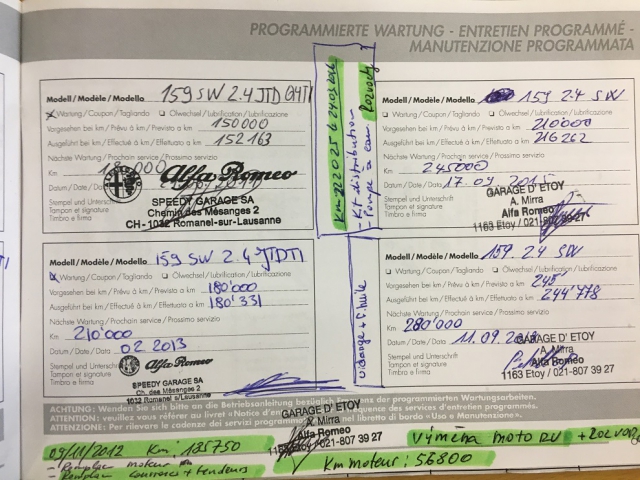 PROGRAMMIERTE WARTUNG - ENTRETIEN PROGRAMMÉ -
MANUTENZIONE PROGRAMMATA
Modell / Modèle / Modello 159 SW 2.4 JTD
Wartung / Coupon / Tagliando Ölwechsel / Lubrification / Lubrificazione
Vorgesehen bei km / Prévu à km / Previsto a km 150000
Ausgeführt bei km / Effectué à km / Effettuato a km 152163
Nächste Wartung / Prochain service / Prossimo servizio
Km 180000
Alfa Romeo
Datum / Date / Data
Stempel und Unterschrift
Tampon et signature
Timbro e firma
SPEEDY GARAGE SA
Chemin des Mésanges 2
CH - 1032 Romanel-sur-Lausanne
Modell / Modèle / Modello 159 SW 2.4 JTDTI
Wartung / Coupon / Tagliando Ölwechsel / Lubrification / Lubrificazione
Vorgesehen bei km / Prévu à km / Previsto a km 180'000
Ausgeführt bei km / Effectué à km / Effettuato a km 180'331
Nächste Wartung / Prochain service / Prossimo servizio
Km 210'000
Datum / Date / Data 02 2013
Stempel und Unterschrift
Tampon et signature
Timbro e firma
Alfa Romeo
SPEEDY GARAGE SA
Ch. des Mésanges 2
1032 Romanel s/Lausanne
Km 222025
- Kit distribution
- Pompe à eau
rozvody
Modell / Modèle / Modello 159 2.4 SW
Wartung / Coupon / Tagliando Ölwechsel / Lubrification / Lubrificazione
Vorgesehen bei km / Prévu à km / Previsto a km 210'000
Ausgeführt bei km / Effectué à km / Effettuato a km 216 262
Nächste Wartung / Prochain service / Prossimo servizio
Km 245000
Datum / Date / Data 17.09 2015
Stempel und Unterschrift
Tampon et signature
Timbro e firma
GARAGE D' ETOY
A. Mirra
Alfa Romeo
1163 Etoy / 021-807 39 27
Modell / Modèle / Modello 159. 2.4 SW
Wartung / Coupon / Tagliando Ölwechsel / Lubrification / Lubrificazione
Vorgesehen bei km / Prévu à km / Previsto a km
Ausgeführt bei km / Effectué à km / Effettuato a km 244'778
Nächste Wartung / Prochain service / Prossimo servizio
Km 280'000
Datum / Date / Data 11.09
Stempel und Unterschrift
Tampon et signature
Timbro e firma
GARAGE D' ETOY
A. Mirra
Alfa Romeo
1163 Etoy / 021-807 39 27
ACHTUNG: Wenden Sie sich bitte an die Betriebsanleitung bezüglich der programmierten Wartungsarbeiten.
ATTENTION: veuillez vous référer au livret «Notice d' des services d'entretien programmés.
ATTENZIONE: Per rilevare la cadenze dei servizi libretto di bordo «Uso e Manutenzione».
GARAGE D' ETOY
A. Mirra
Alfa Romeo
1163 Etoy / 021-807 39 27
Km: 185750
výměna motoru + rozvody
moteur
courroies + tendeurs
Km moteur: 56800